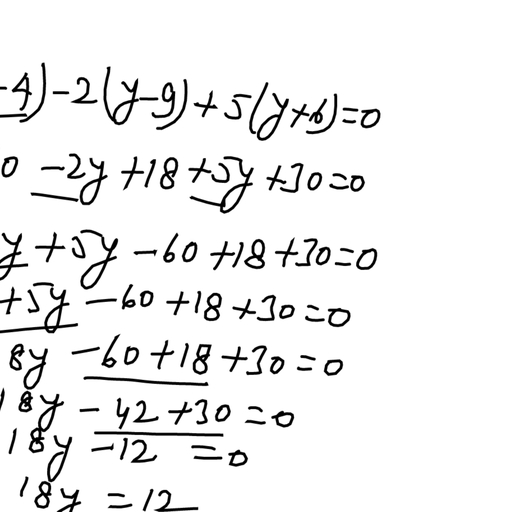 -4)-2(y-9)+5(y+6)=0
0 -2y+18+5y+30=0
y+5y-60+18+30=0
+5y-60+18+30=0
8y-60+18+30=0
18y-42+30=0
18y-12=0
18y=12